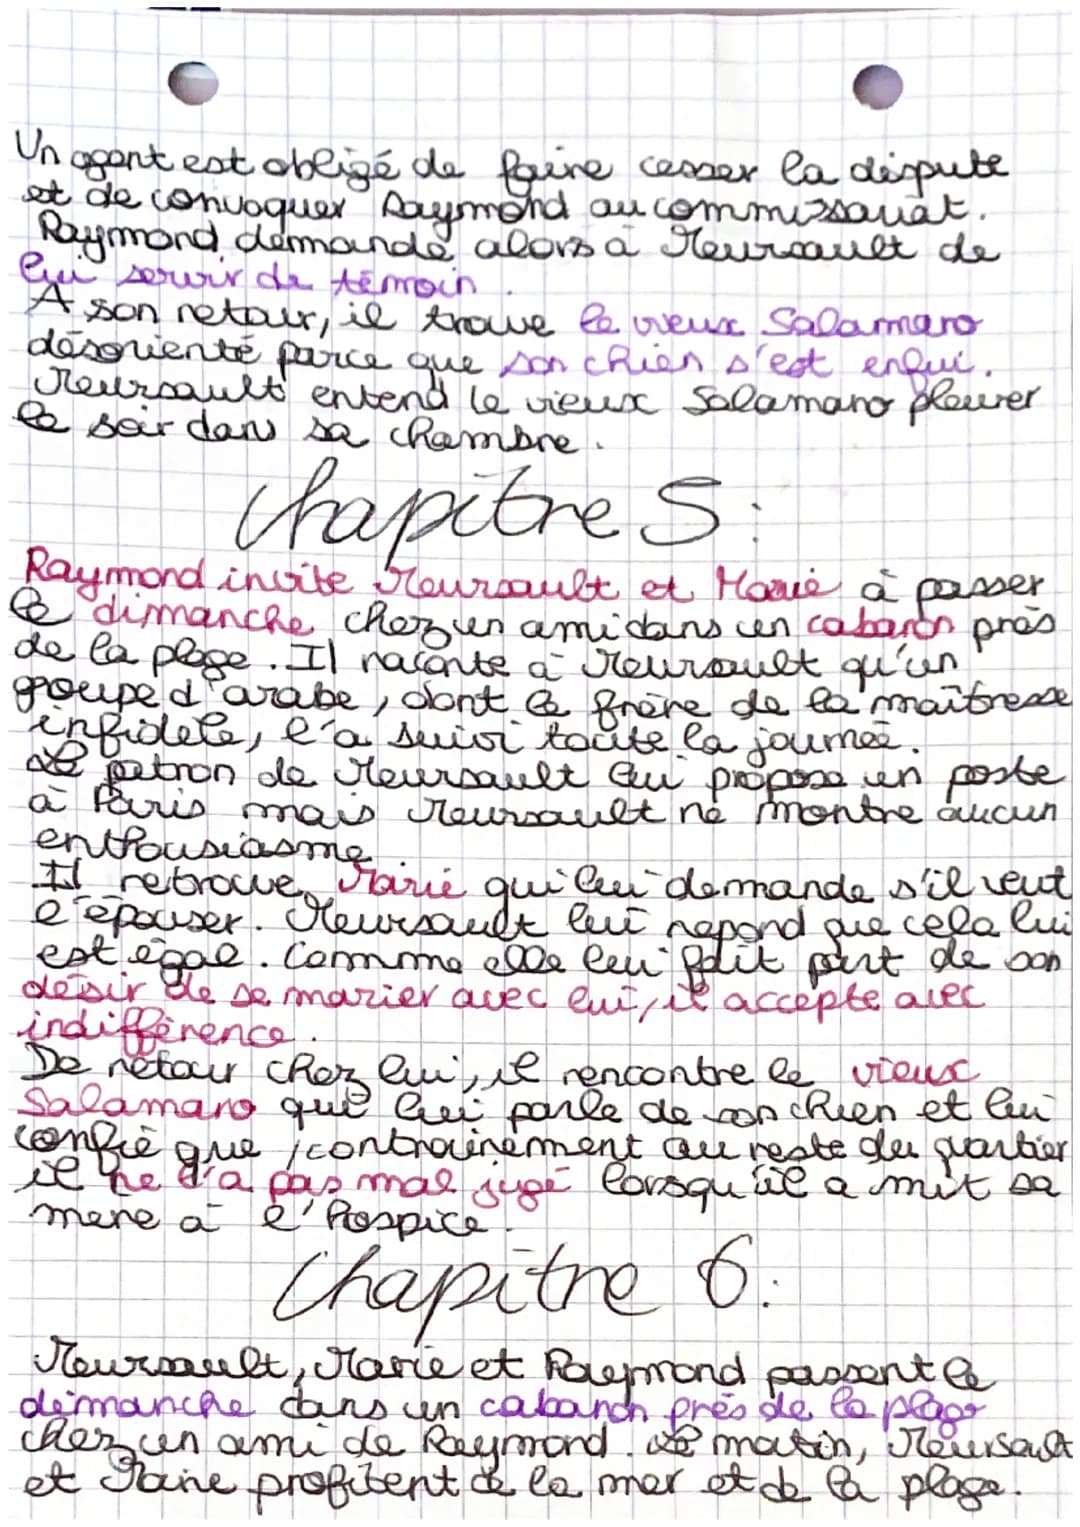 Un agent est obligé de faire cesser la dispute
et de convoquer Raymond au commissariat.
Raymond demande alors à Meursault de
lui servir de témoin.
A son retour, il trouve le vieux Salamano
désorienté parce que son chien s'est enfui.
Meursault entend le vieux Salamano pleurer
le soir dans sa chambre.
Chapitre 5:
Raymond invite Meursault et Marie à passer
le dimanche chez un ami dans un cabanon près
de la plage. Il raconte à Meursault qu'un
groupe d'arabe, dont le frère de la maîtresse
infidèle, l'a suivi toute la journée.
Le patron de Meursault lui propose un poste
à Paris mais Meursault ne montre aucun
enthousiasme
Il retrouve Marie qui lui demande s'il veut
l'épouser. Meursault lui repond que cela lui
est égal. Comme elle lui fait part de son
désir de se marier avec lui, il accepte avec
indifférence.
De retour chez lui, il rencontre le vieux
Salamano qui lui parle de son chien et lui
confie que, contrairement au reste du quartier
il ne l'a pas mal jugé lorsqu'il a mit sa
mere à l'hospice.
Chapitre 6:
Meursault, Marie et Raymond passent le
dimanche dans un cabanon près de la plage
chez un ami de Raymond. Le matin, Meursault
et Marie profitent de la mer et de la plage.